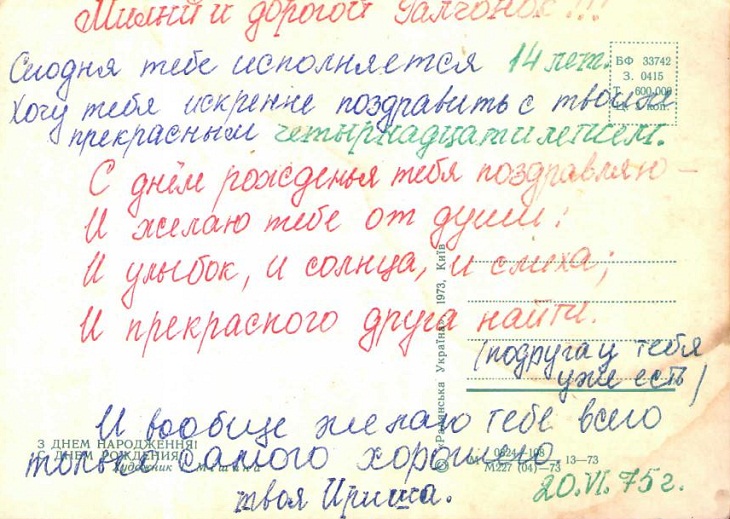 Милый и дорогой Галчонок!!!
Сегодня тебе исполняется 14 лет.
Хочу тебя искренне поздравить с твоим
прекрасным четырнадцатилетием.
С днём рожденья тебя поздравляю –
И желаю тебе от души:
И улыбок, и солнца, и смеха;
И прекрасного друга найти.
(подруга у тебя
уже есть)
И вообще желаю тебе всего
только самого хорошего.
твоя Ириша.
20.VI.75г.
БФ 33742
З. 0415
Т. 600.000
коп.
© «Радянська Україна», 1973, Київ
З ДНЕМ НАРОДЖЕННЯ!
С ДНЕМ РОЖДЕНИЯ!
Художник
М 0824—108
М227 (04)—73 13—73